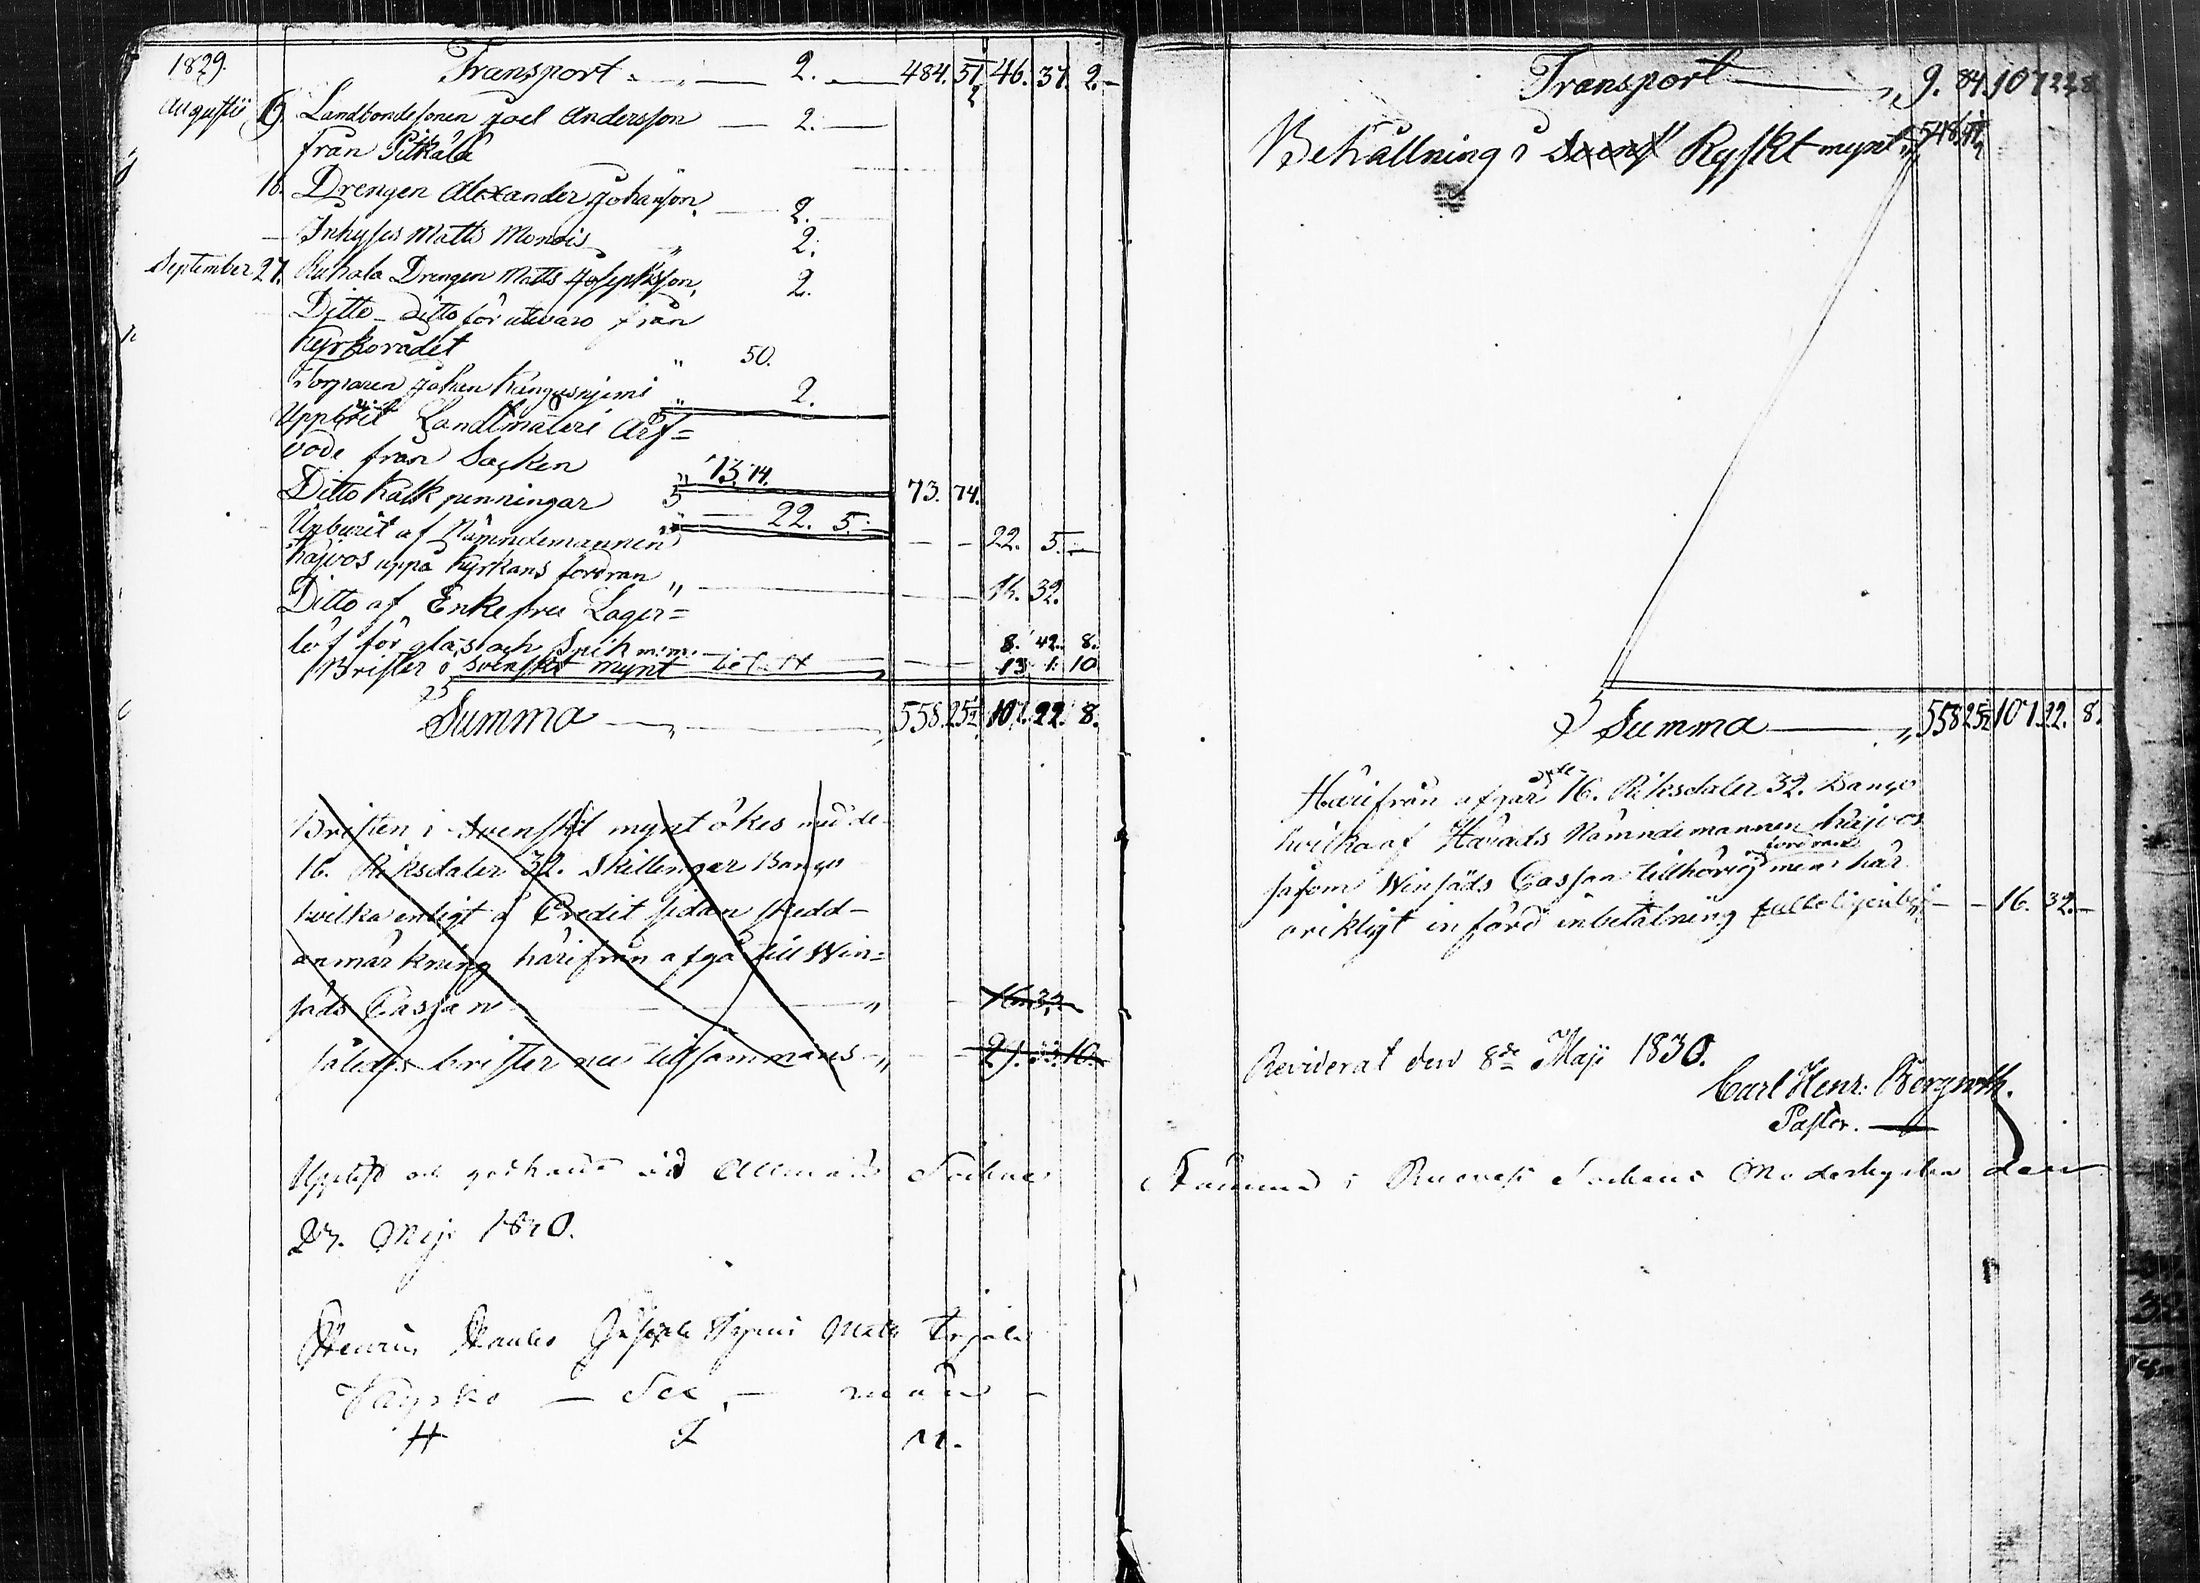 1829.
Transport 2. 484. 51 1/2 46. 37. 2.
Augusti 9. Landbondesonen Joel Andersson 2.
från Pitkälä
10. Drengen Alexander Johansson 2.
Inhyses Matts 2.
September 27. Drengen Matts Josephsson 2.
Ditto ditto för utevaro från
Kyrkorådet 50.
Torparen Johan Kangasnjemi 2.
Uppburit Landtmäteri Arf=
vode från Socken 13. 14.
Ditto kalk penningar 22. 5. 73. 74.
Upburit af Nämndemannen 22. 5.
Hajvos uppå Kyrkans fordran 16. 32.
Ditto af Enkefru Lager=
löf för glas och Spik m:m: 8. 42. 8.
Brister i svenskt mynt 13. 1. 10
Summa 558. 25 1/2 107. 22. 8.
Bristen i Svenskt mynt ökes med de
16. Riksdaler 32. Skillingar Banco
hvilka enligt å Credit sidan skedd
anmärkning härifrån afgå till Win=
säds Cassan 16. 32.
således brister nu tillsammans 29. 33. 10.
Upläst och godkändt vid Allmän Sockne
27. Maji 1830.
Henric Joseph Niemi Matts
H I M.
Transport 9. 84. 107 22 8
Behållning i Svenskt Ryskt mynt 548.
Summa 558 25 1/2 107. 22. 8.
Härifrån afgår 16. Riksdaler 32. Banco
hvilka af Härads Nämndemannen Hajvos
fordran
såsom Winsäds Cassan tillhörig men här
oriktigt införd inbetalning 16. 32.
Reviderat den 8de Maji 1830.
Carl Henr: Bergroth.
Pastor.
Stämma i Sockens Moderkyrka den